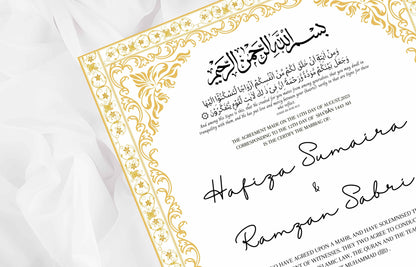 بسم الله الرحمن الرحيم
وَمِنْ آيَاتِهِ أَنْ خَلَقَ لَكُم مِّنْ أَنفُسِكُمْ أَزْوَاجًا لِّتَسْكُنُوا إِلَيْهَا
وَجَعَلَ بَيْنَكُم مَّوَدَّةً وَرَحْمَةً إِنَّ فِي ذَٰلِكَ لَآيَاتٍ لِّقَوْمٍ يَتَفَكَّرُونَ
And among His Signs is this, that He created for you mates from among yourselves, that you may dwell in
tranquility with them, and He has put love and mercy between your (hearts): verily in that are Signs for those
who reflect
THE AGREEMENT MADE ON THE 11TH DAY OF AUGUST, 2023
CORRESPONDING TO THE 12TH DAY OF 1443 AH
IS THE CERTIFY THE MARRIAGE OF:
Hafiza Sumaira
&
Ramzan Sabri
TO HAVE AGREED UPON A MAHR, AND HAVE SOLEMNISED T
OF WITNESSES. THEY TWO AGREE TO CONDUCT
ISLAMIC LAW, THE QURAN AND THE TEA
MUHAMMAD